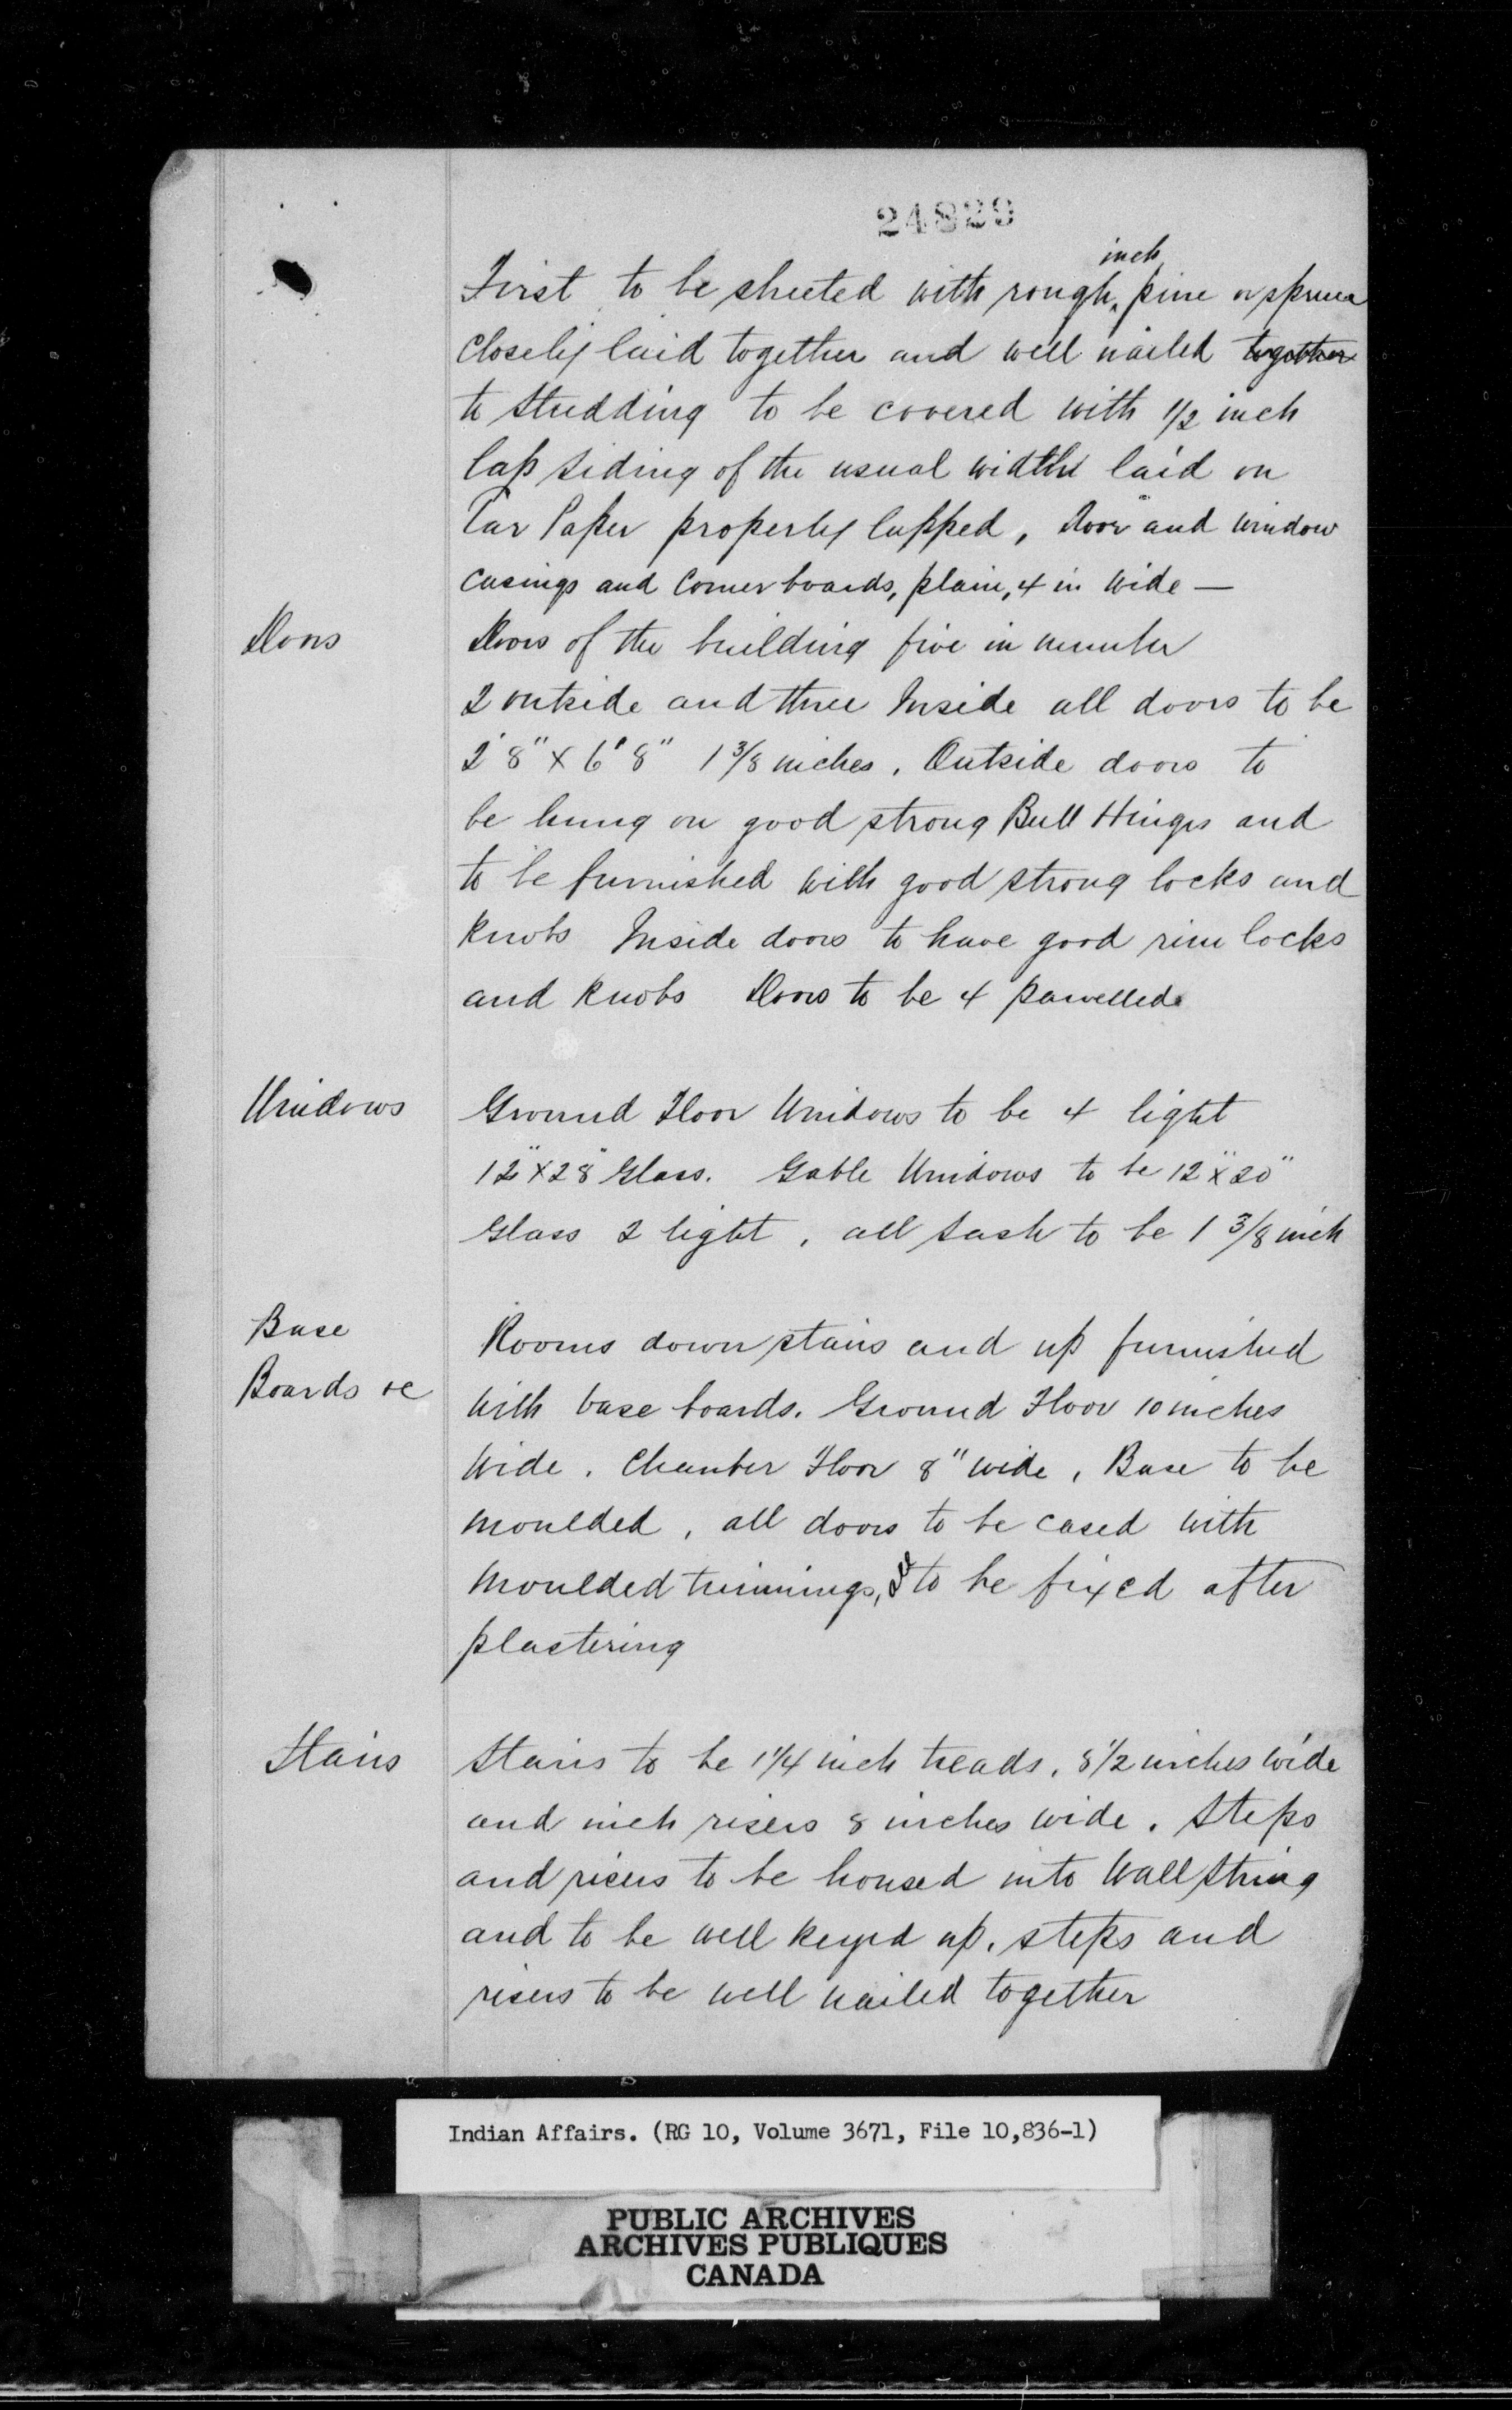 24829
inch
First to be sheeted with rough pine or spruce
closely laid together and well nailed together
to studding to be covered with 1/2 inch
lap siding of the usual widths laid on
Tar Paper properly lapped, Door and Window
casings and Corner boards, plain, 4 in wide —
Doors
Doors of the building five in number
2 outside and three Inside all doors to be
2' 8" x 6' 8" 1 3/8 inches. Outside doors to
be hung on good strong Butt Hinges and
to be furnished with good strong locks and
Knobs Inside doors to have good rim locks
and Knobs Doors to be 4 panelled
Windows
Ground Floor Windows to be 4 light
12" x 28" Glass. Gable Windows to be 12" x 20"
Glass 2 light, all sash to be 1 3/8 inch
Base
Boards &c
Rooms down stairs and up furnished
with base boards. Ground Floor 10 inches
wide. Chamber Floor 8" wide, Base to be
moulded, all doors to be cased with
moulded trimmings, & to be fixed after
plastering
Stairs
Stairs to be 1 1/4 inch treads, 8 1/2 inches wide
and inch risers 8 inches wide. Steps
and risers to be housed into Wall string
and to be well keyed up, steps and
risers to be well nailed together
Indian Affairs. (RG 10, Volume 3671, File 10,836-1)
PUBLIC ARCHIVES
ARCHIVES PUBLIQUES
CANADA